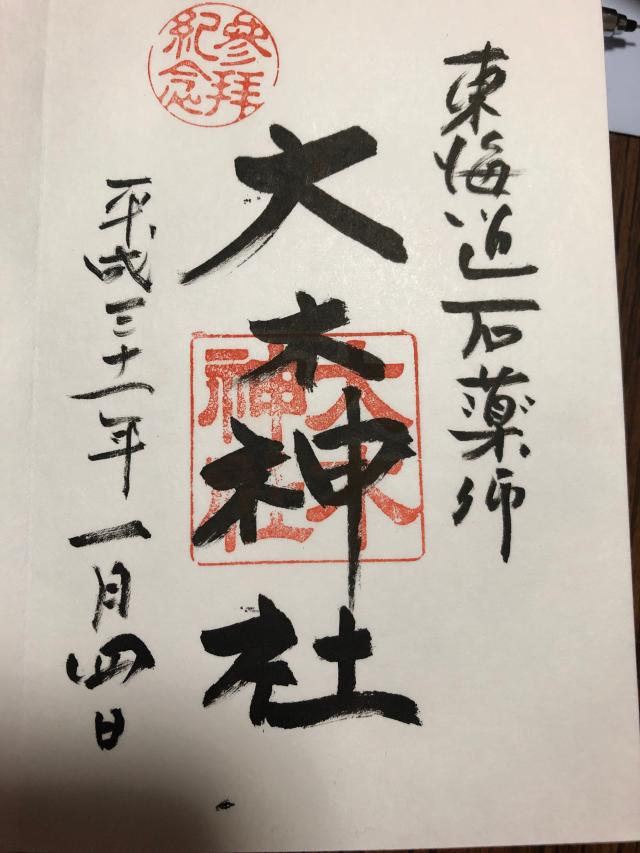 東海道石薬師
参拝
紀念
大木神社
大木
神社
平成三十一年一月四日